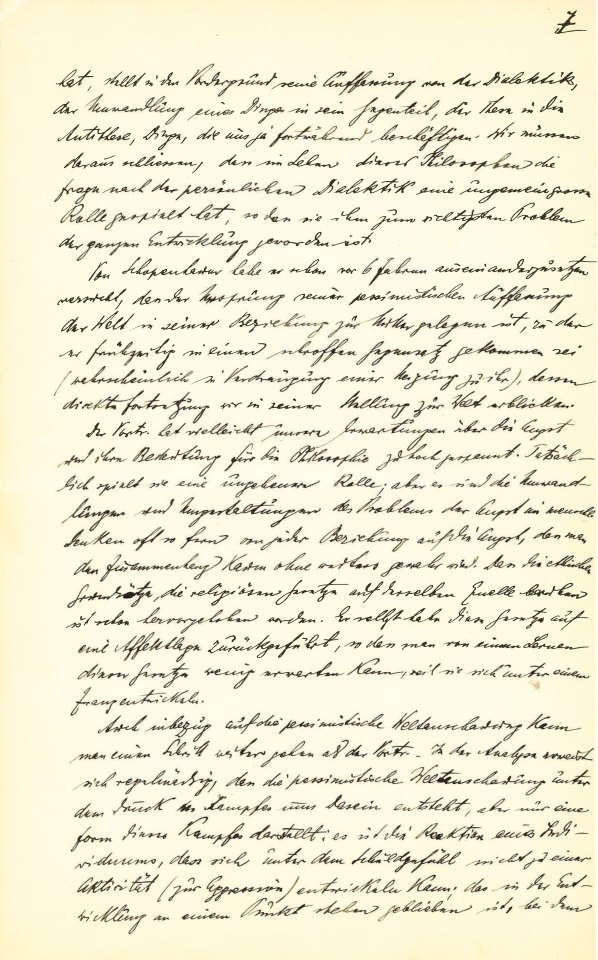 7
hat, stellt in den Vordergrund seine Auffassung von der Dialektik,
der Umwandlung eines Dinges in sein Gegenteil, der These in die
Antithese, Dinge, die uns ja fortwährend beschäftigen. Wir müssen
daraus schliessen, dass im Leben dieses Philosophen die
Frage nach der persönlichen Dialektik eine ungemein grosse
Rolle gespielt hat, so dass sie ihm zum wichtigsten Problem
der ganzen Entwicklung geworden ist.
Von Schopenhauer habe er schon vor 6 Jahren auseinanderzusetzen
versucht, dass der Ursprung seiner pessimistischen Auffassung
der Welt in seiner Beziehung zur Mutter gelegen ist, zu der
er frühzeitig in einen schroffen Gegensatz gekommen sei
(wahrscheinlich in Verdrängung einer Neigung zu ihr), dessen
direkte Fortsetzung wir in seiner Stellung zur Welt erblicken.
Der Vortr. hat vielleicht unsere Erwartungen über die Angst
und ihre Bedeutung für die Philosophie zu hoch gespannt. Tatsäch-
lich spielt sie eine ungeheure Rolle; aber es sind die Umwand-
lungen und Umgestaltungen des Problems der Angst im menschl.
Denken oft so fern von jeder Beziehung auf die Angst, dass man
den Zusammenhang kaum ohne weiteres gewahr wird. Dass die ethischen
Grundsätze, die religiösen Gesetze auf derselben Quelle beruhen
ist schon hervorgehoben worden. Er selbst habe diese Gesetze auf
eine Affektlage zurückgeführt, so dass man von einem Lernen
dieser Gesetze wenig erwarten kann, weil sie sich unter einem
Zwang entwickeln.
Auch inbezug auf die pessimistische Weltanschauung kann
man einen Schritt weiter gehen als der Vortr. In der Analyse erweist
sich regelmässig, dass die pessimistische Weltanschauung unter
dem Druck des Kampfes ums Dasein entsteht, aber nur eine
Form dieses Kampfes darstellt; es ist die Reaktion eines Indi-
viduums, dass sich unter dem Schuldgefühl nicht zu einer
Aktivität (zur Aggression) entwickeln kann; das in der Ent-
wicklung an einem Punkt stehen geblieben ist, bei dem